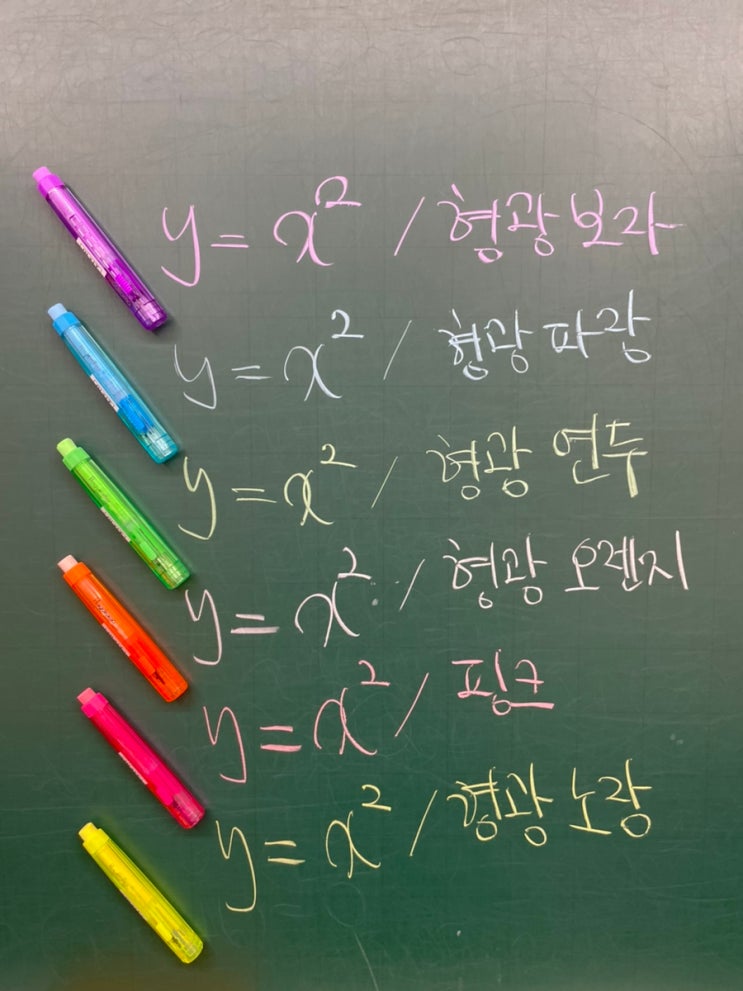 y = x² / 형광 보라
y = x² / 형광 파랑
y = x² / 형광 연두
y = x² / 형광 오렌지
y = x² / 핑크
y = x² / 형광 노랑